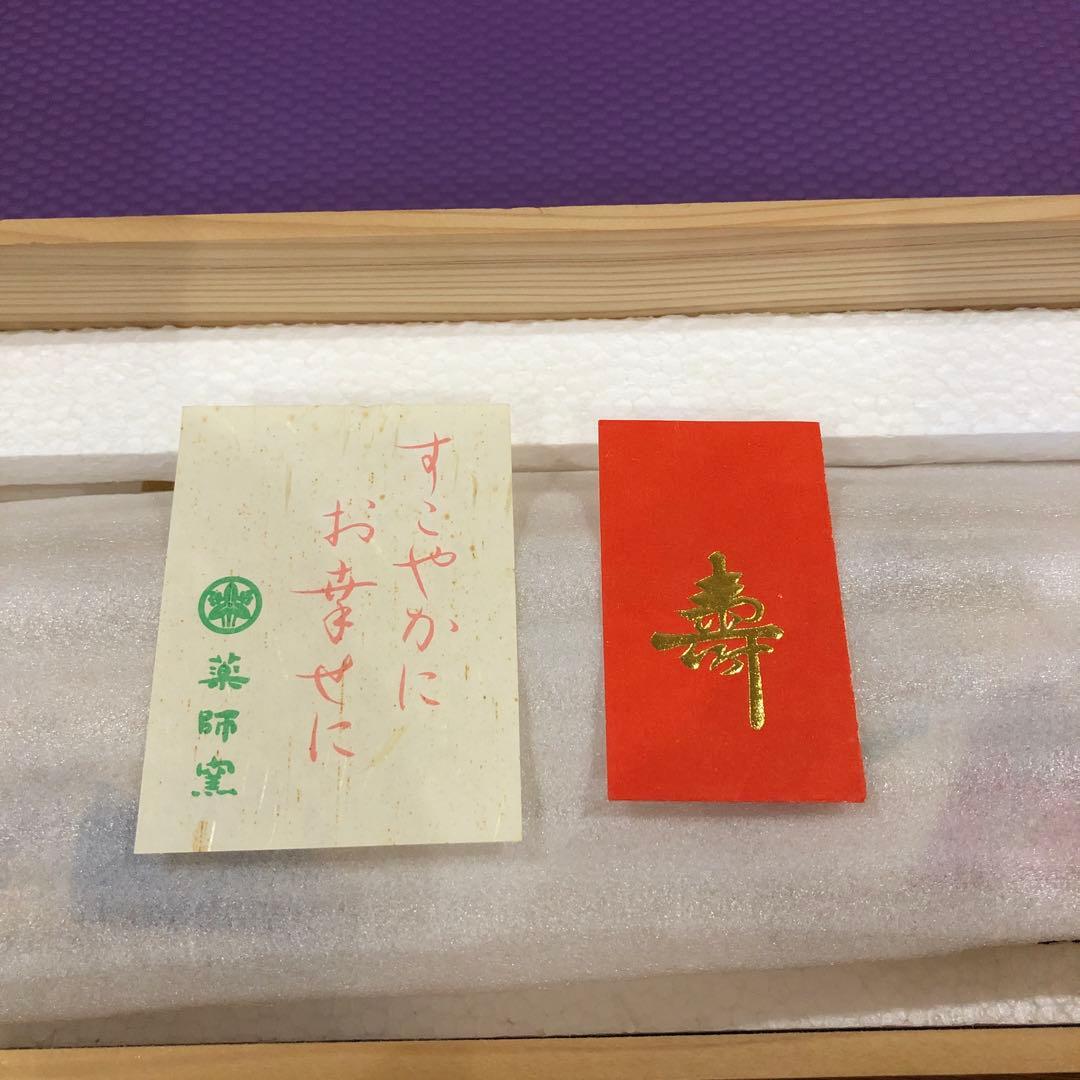 すこやかに
お幸せに
薬師窯
寿